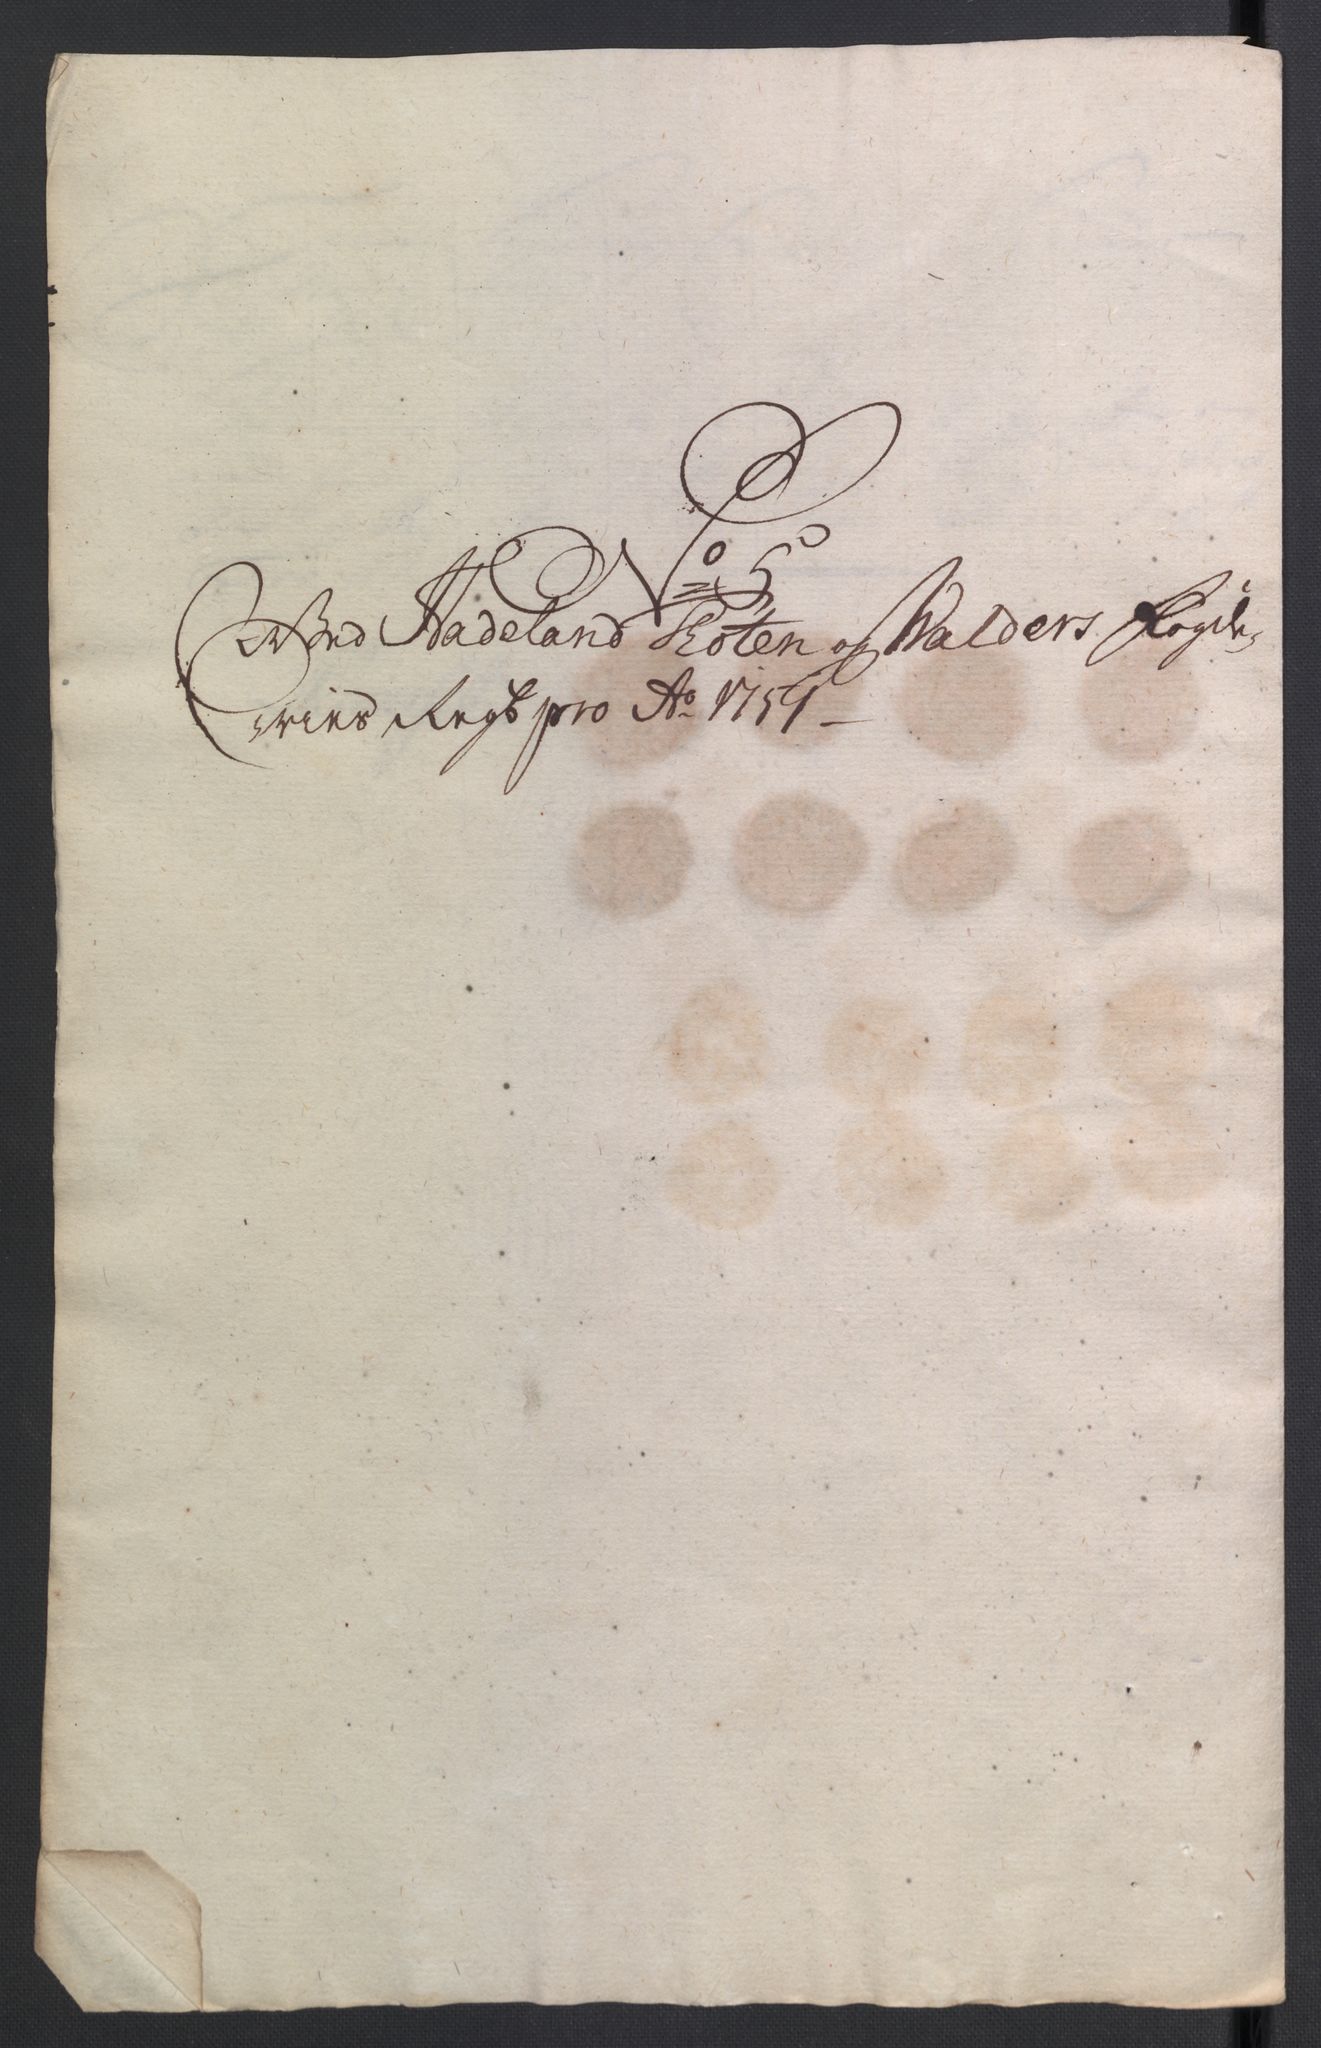 No 5
Ved Hadeland Toten og Walders Fogde-
ries Regsk pro Ao 1751